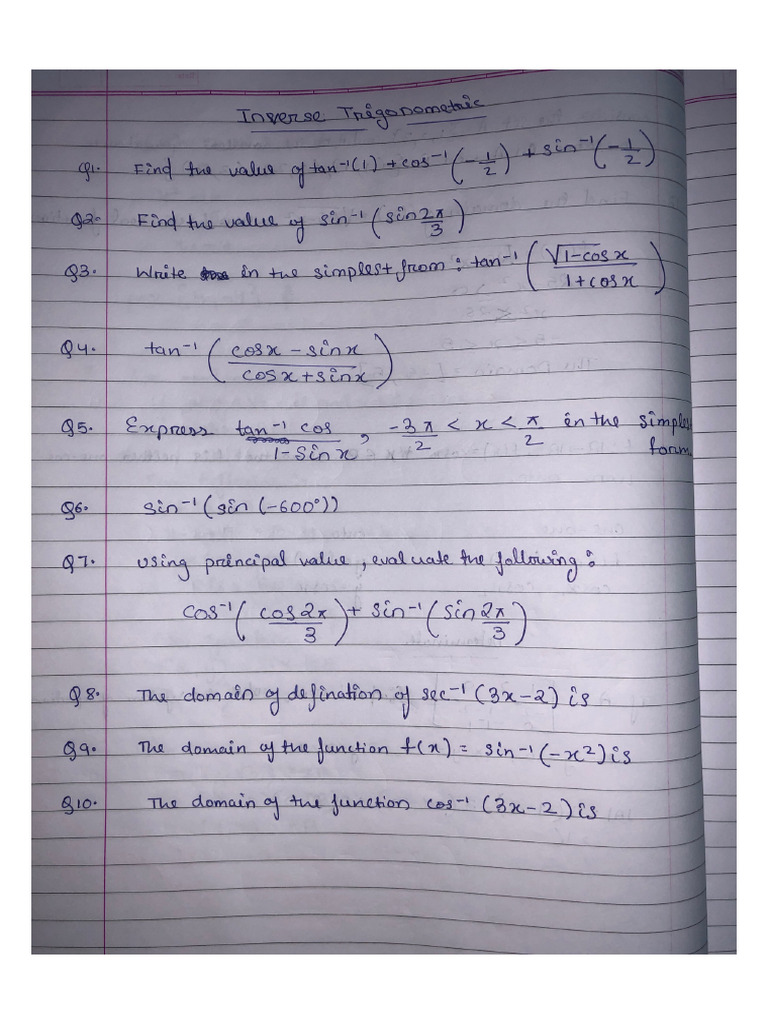 Inverse Trigonometric
Q1. Find the value of tan⁻¹(1) + cos⁻¹(-1/2) + sin⁻¹(-1/2)
Q2. Find the value of sin⁻¹(sin 2π/3)
Q3. Write in the simplest from : tan⁻¹(√1-cosx/1+cosx)
Q4. tan⁻¹(cosx - sinx/cosx + sinx)
Q5. Express tan⁻¹ cos/1-Sinx, -3π/2 < x < π/2 in the simples
form
Q6. sin⁻¹(sin(-600°))
Q7. Using principal value, evaluate the following :
cos⁻¹(cos 2π/3) + sin⁻¹(sin 2π/3)
Q8. The domain of defination of sec⁻¹(3x-2) is
Q9. The domain of the function f(x) = sin⁻¹(-x²) is
Q10. The domain of the function cos⁻¹(3x-2) is